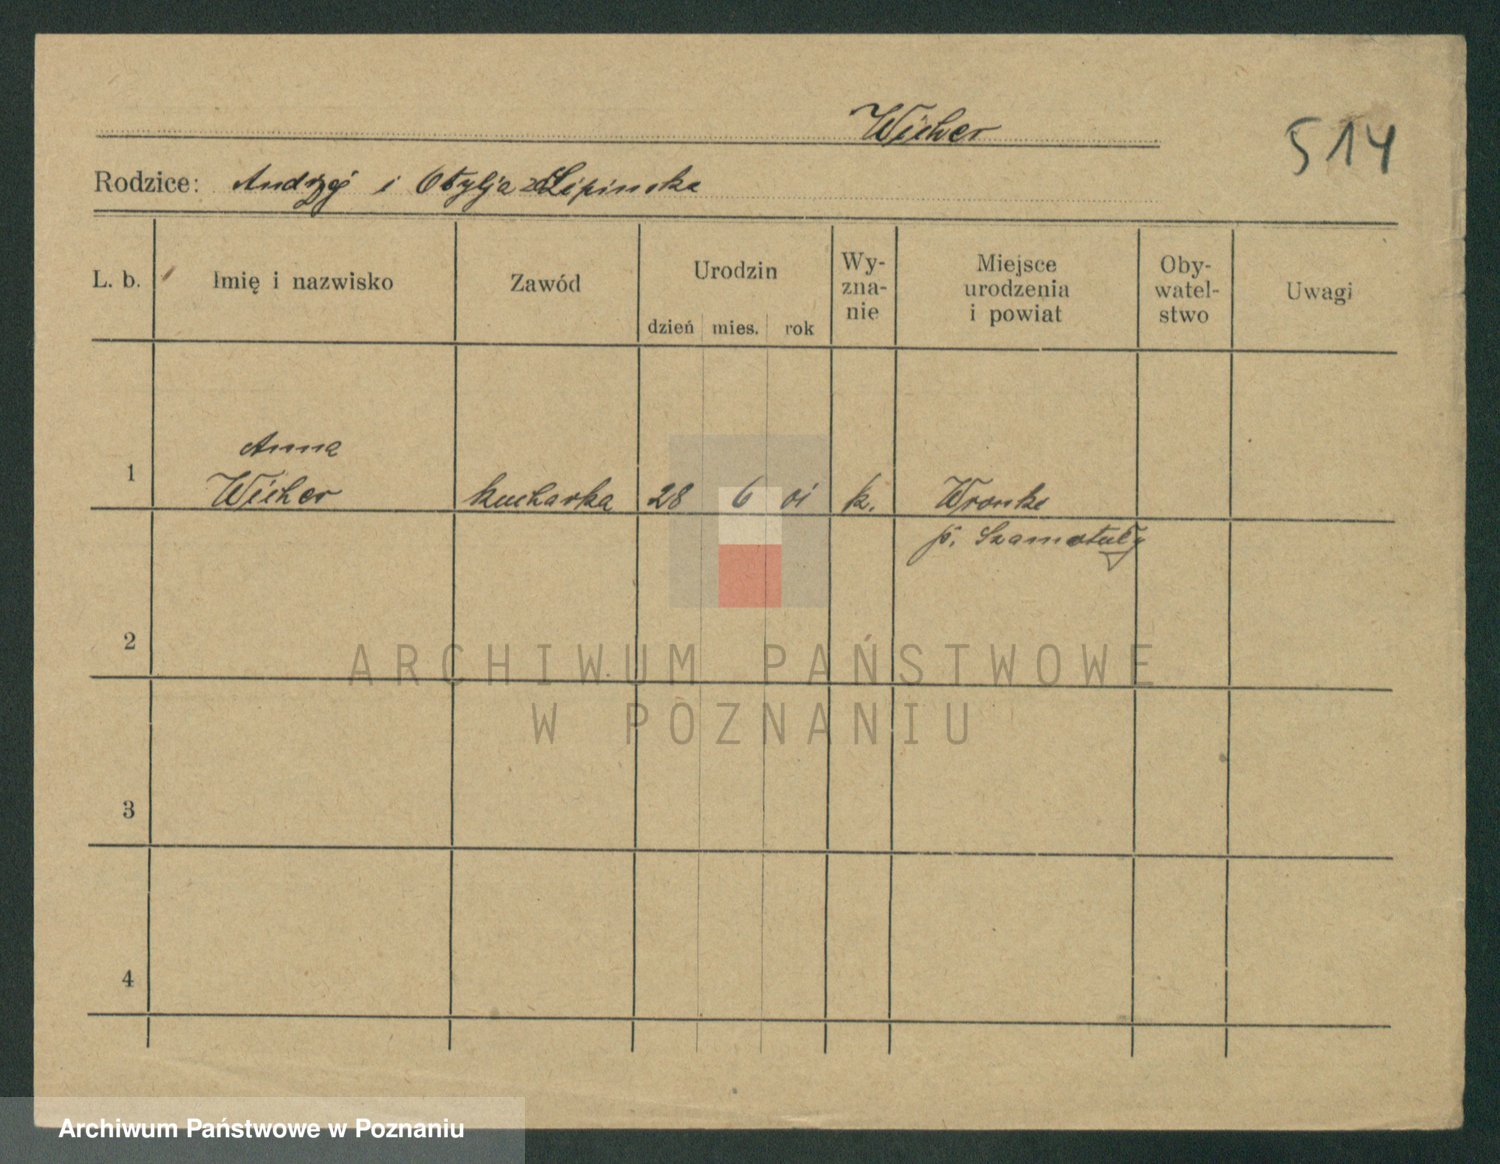 Wicher
514
Rodzice: Andrzej i Otylja z Lipinska
L. b. Imię i nazwisko Zawód Urodzin Wy-zna-nie Miejsce urodzenia i powiat Oby-watel-stwo Uwagi
dzień mies. rok
Anna
1 Wicher kucharka 28 6 01 k. Wronke
p. Szamotuły
2
ARCHIWUM PAŃSTWOWE
W POZNANIU
3
4
Archiwum Państwowe w Poznaniu